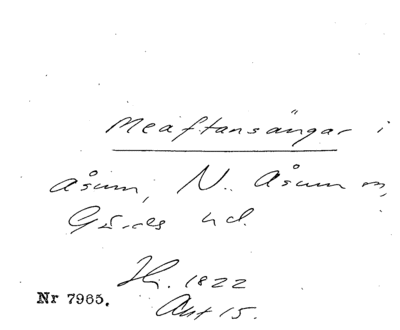 Meaftansångar i
Åsum, N. Åsum sn,
Gärds hd.
1822
Nr 7965.
Akt 15.